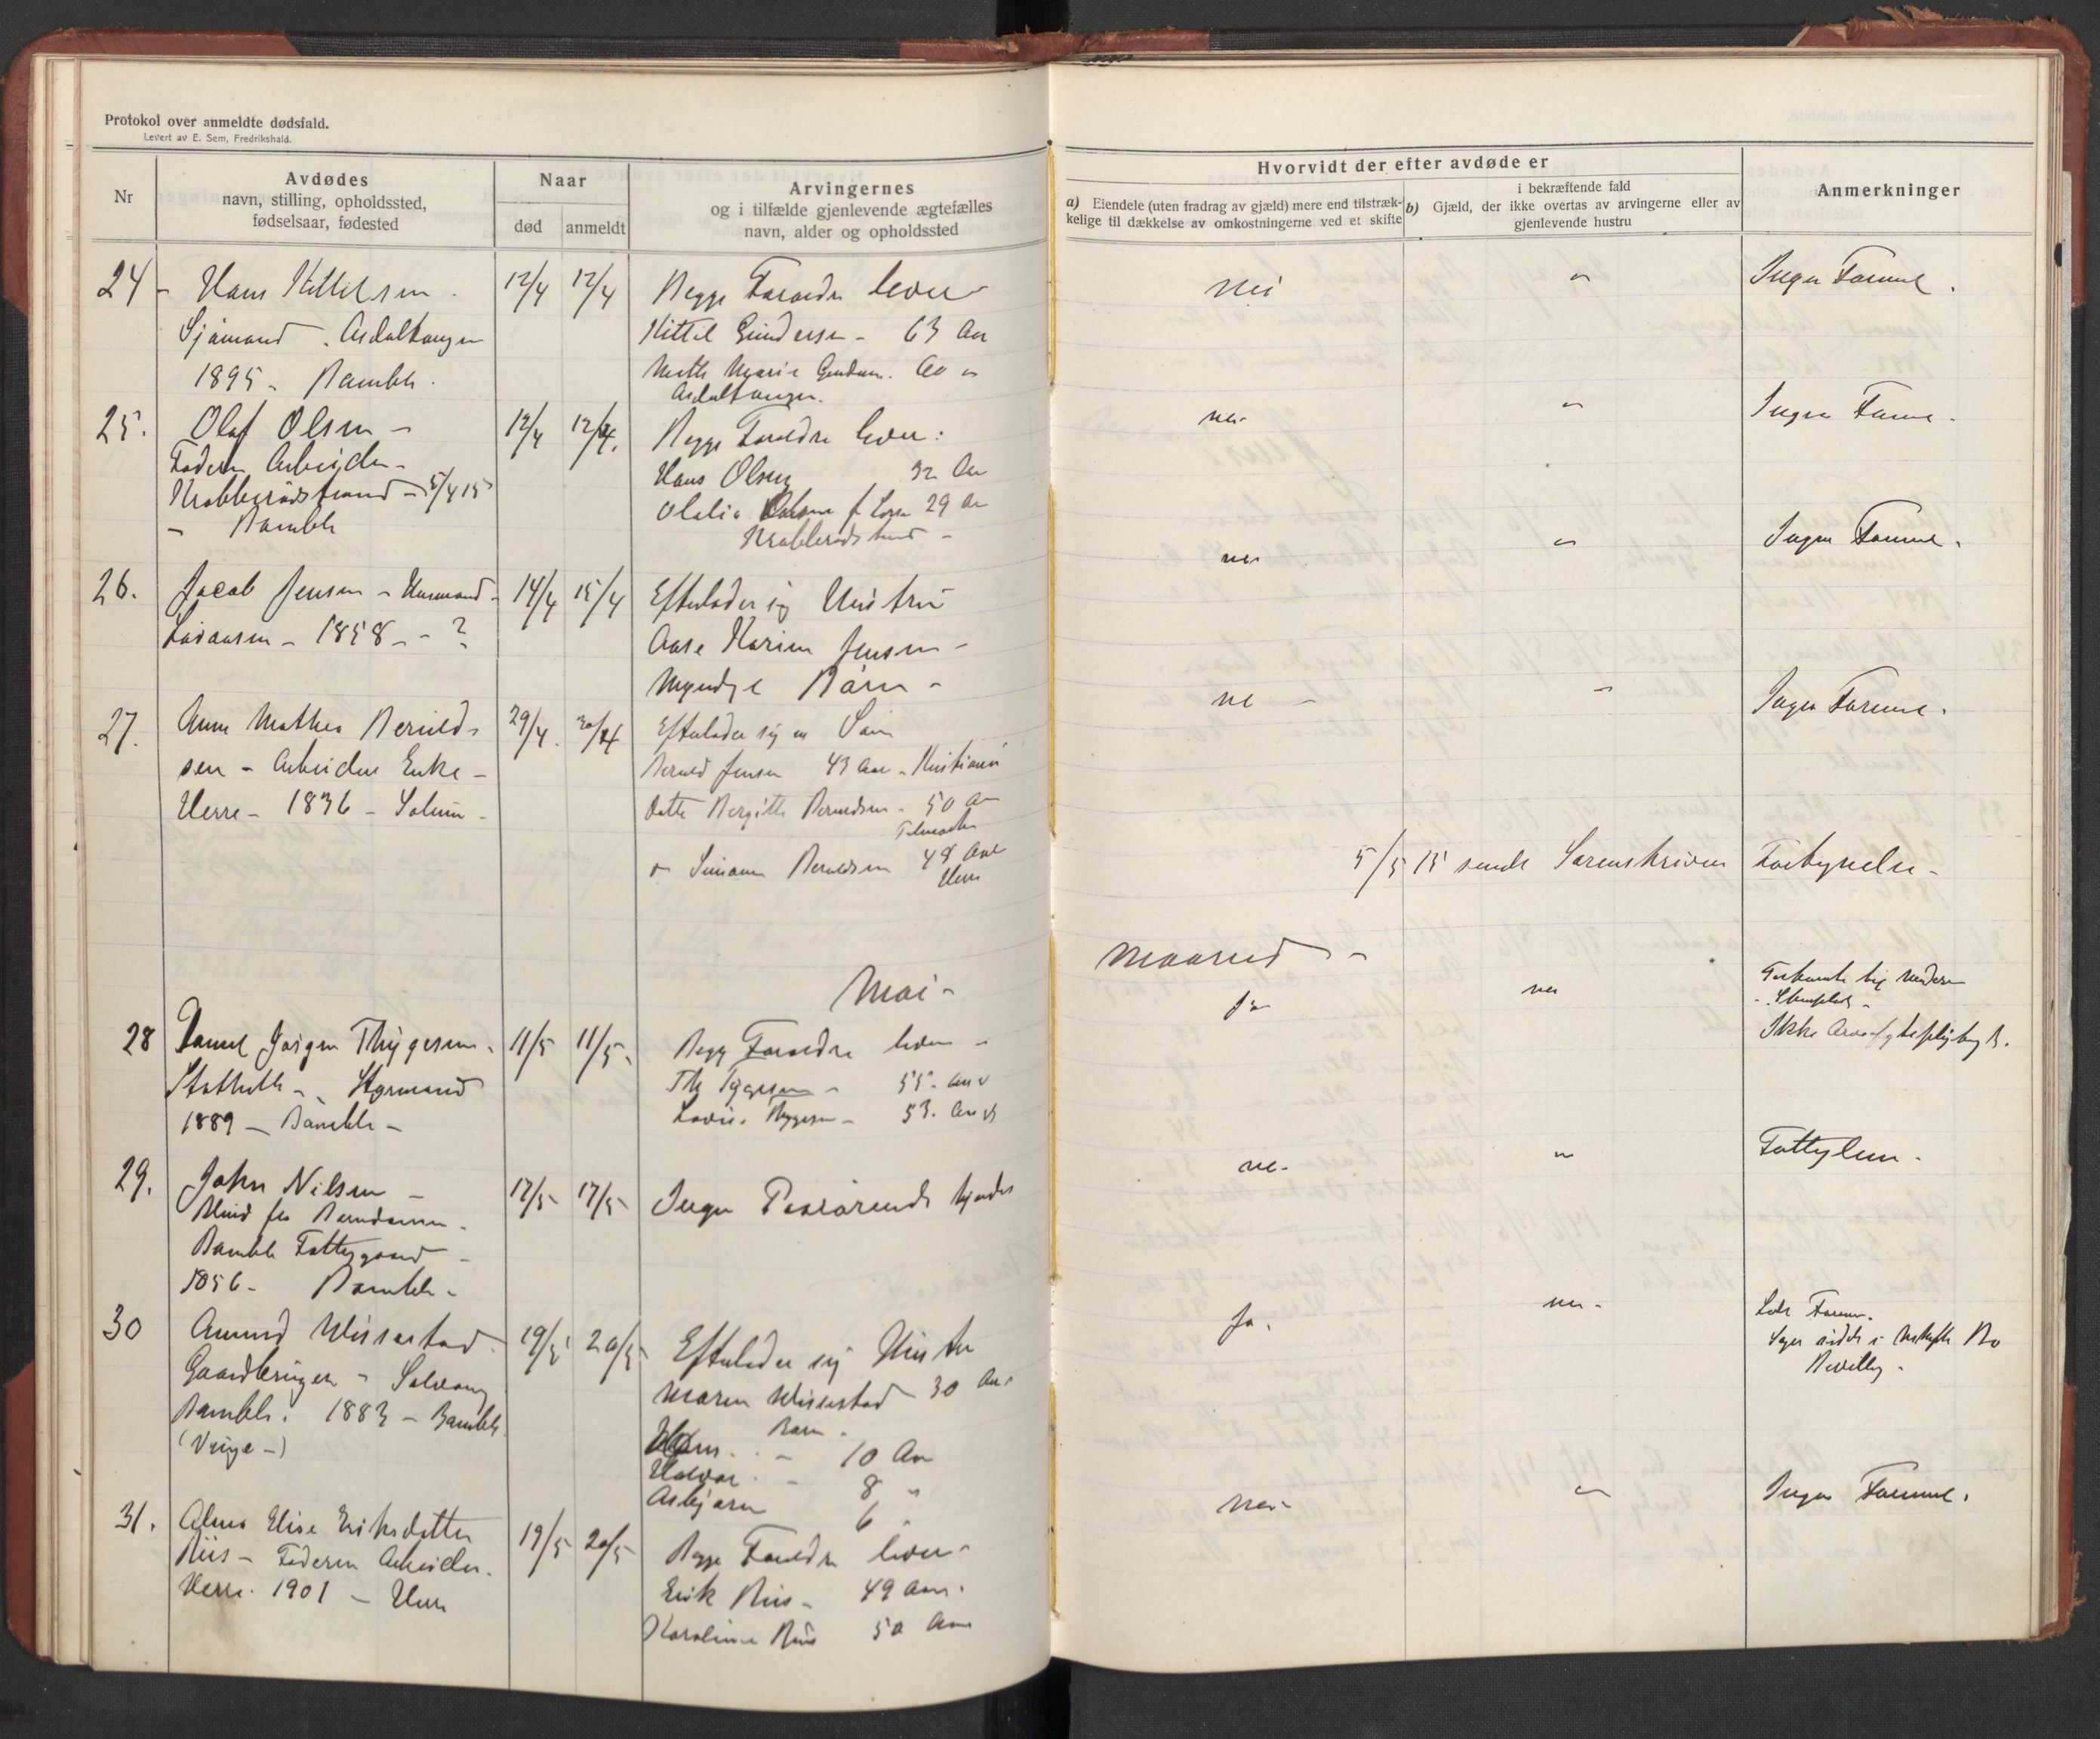 Protokol over anmeldte dødsfald.
Levert av E. Sem, Fredrikshald.
Nr
Avdødes
navn, stilling, opholdssted,
fødselsaar, fødested
Naar
død
anmeldt
Arvingernes
og i tilfælde gjenlevende ægtefælles
navn, alder og opholdssted
Hvorvidt der efter avdøde er
a) Eiendele (uten fradrag av gjæld) mere end tilstræk-
kelige til dækkelse av omkostningerne ved et skifte
i bekræftende fald
b) Gjæld, der ikke overtas av arvingerne eller av
gjenlevende hustru
Anmerkninger
24 - Hans Kittelsen.
Sjømand. Asdaltangen
1895 - Bamble.
12/4 12/4
Begge Foreldre lever
Kittel Gundersen - 63 Aar
Marie 60 "
Asdaltangen.
nei " Ingen Formue.
25. Olaf Olsen -
Faderen Arbeider -
Krabberødstrand - 5/4 15
- Bamble
12/4 12/4.
Begge Foreldre lever:
Hans Olsen 32 Aar
Olalia f. 29 Aar
Krabberødstrand -
nei " Ingen Formue -
26. Jacob Jensen - Husmand -
1858 - - ?
14/4 15/4
Efterlader sig Hustru
Aase Karine Jensen -
Myndige Børn -
nei " Ingen Formue.
27. Anne Mathea Berulds
sen - Arbeider Enke -
Herre - 1836 - Solum -
29/4. 30/4
Efterlader sig en Søn
Beruld Jensen 43 Aar - Kristiania
Datter Bergitte 50 Aar
48 Aar
Herre
nei - " Ingen Formue.
5/5 15 sendt Sorenskriveren Fortegnelse -
Mai - Maaned -
28 Daniel Jørgen Thygesen.
Stathelle - Styrmand
1889 - Bamble -
11/5 11/5.
Begge Foreldre lever -
Th Tygesen - 55. Aar
Lovise Thygesen - 53. Aar
Ja nei
Ikke
29. John Nilsen -
Blind fra
Bamble Fattiggaard -
1856 - Bamble -
17/5 17/5
Ingen Paarørende kjendes
nei - " Fattiglem -
30 Amund Wissestad.
Gaardbruger - Solvang
Bamble. 1883 - Bamble.
(Vinje -)
19/5 20/5
Efterlader sig Hustru
Maren Wissestad 30 Aar
Barn.
Hans. - 10 Aar
Halvor. - 8 "
Asbjørn 6 "
Ja. nei -
Formue.
Bevilling -
31. Alma Elise Eriksdatter
Riis - Faderen Arbeider.
Herre. 1901 - Herre
19/5 20/5
Begge Foreldre lever -
Erik Riis - 49 Aar.
Karoline Riis 50 Aar
nei - " Ingen Formue.